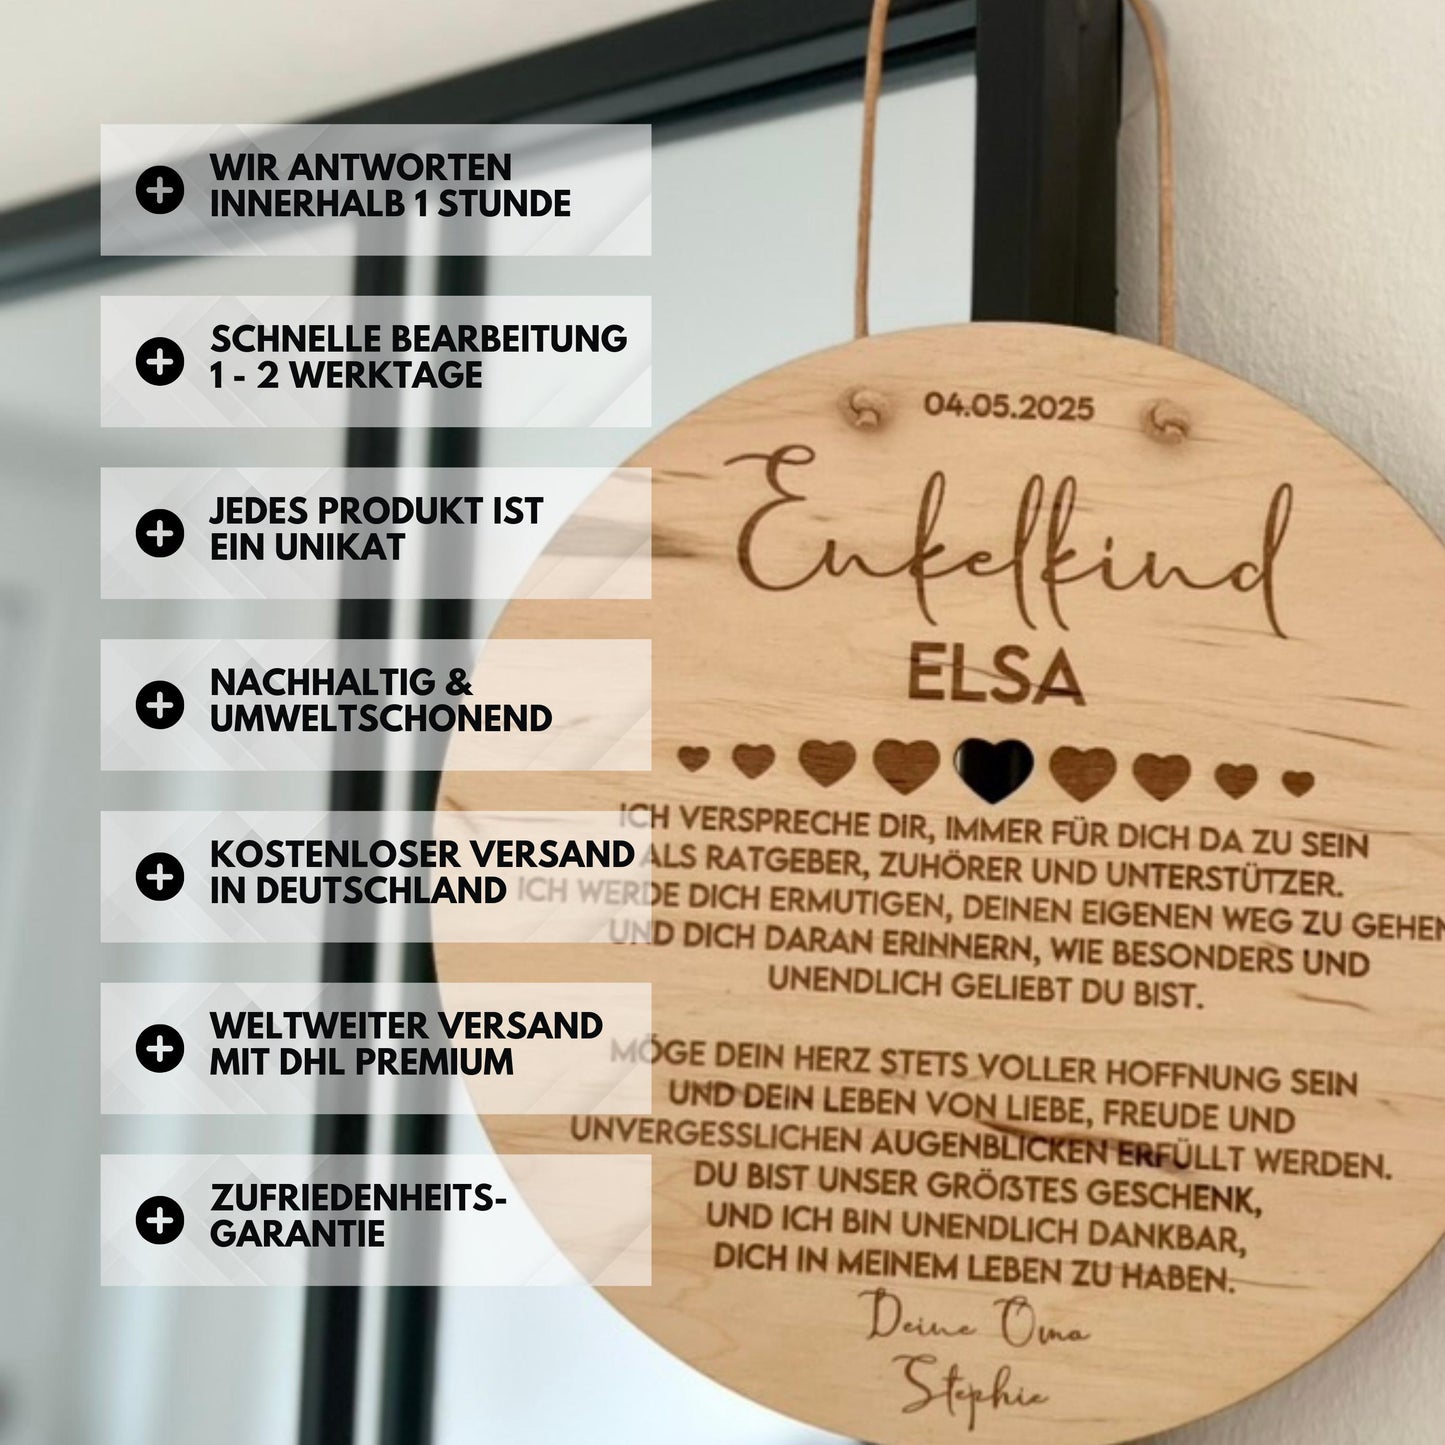 WIR ANTWORTEN
INNERHALB 1 STUNDE
SCHNELLE BEARBEITUNG
1 - 2 WERKTAGE
JEDES PRODUKT IST
EIN UNIKAT
NACHHALTIG &
UMWELTSCHONEND
KOSTENLOSER VERSAND
IN DEUTSCHLAND
WELTWEITER VERSAND
MIT DHL PREMIUM
ZUFRIEDENHEITS-
GARANTIE
04.05.2025
Enkelkind
ELSA
ICH VERSPRECHE DIR, IMMER FÜR DICH DA ZU SEIN
ALS RATGEBER, ZUHÖRER UND UNTERSTÜTZER.
ICH WERDE DICH ERMUTIGEN, DEINEN EIGENEN WEG ZU GEHEN
UND DICH DARAN ERINNERN, WIE BESONDERS UND
UNENDLICH GELIEBT DU BIST.
MÖGE DEIN HERZ STETS VOLLER HOFFNUNG SEIN
UND DEIN LEBEN VON LIEBE, FREUDE UND
UNVERGESSLICHEN AUGENBLICKEN ERFÜLLT WERDEN.
DU BIST UNSER GRÖẞTES GESCHENK,
UND ICH BIN UNENDLICH DANKBAR,
DICH IN MEINEM LEBEN ZU HABEN.
Deine Oma
Stephie